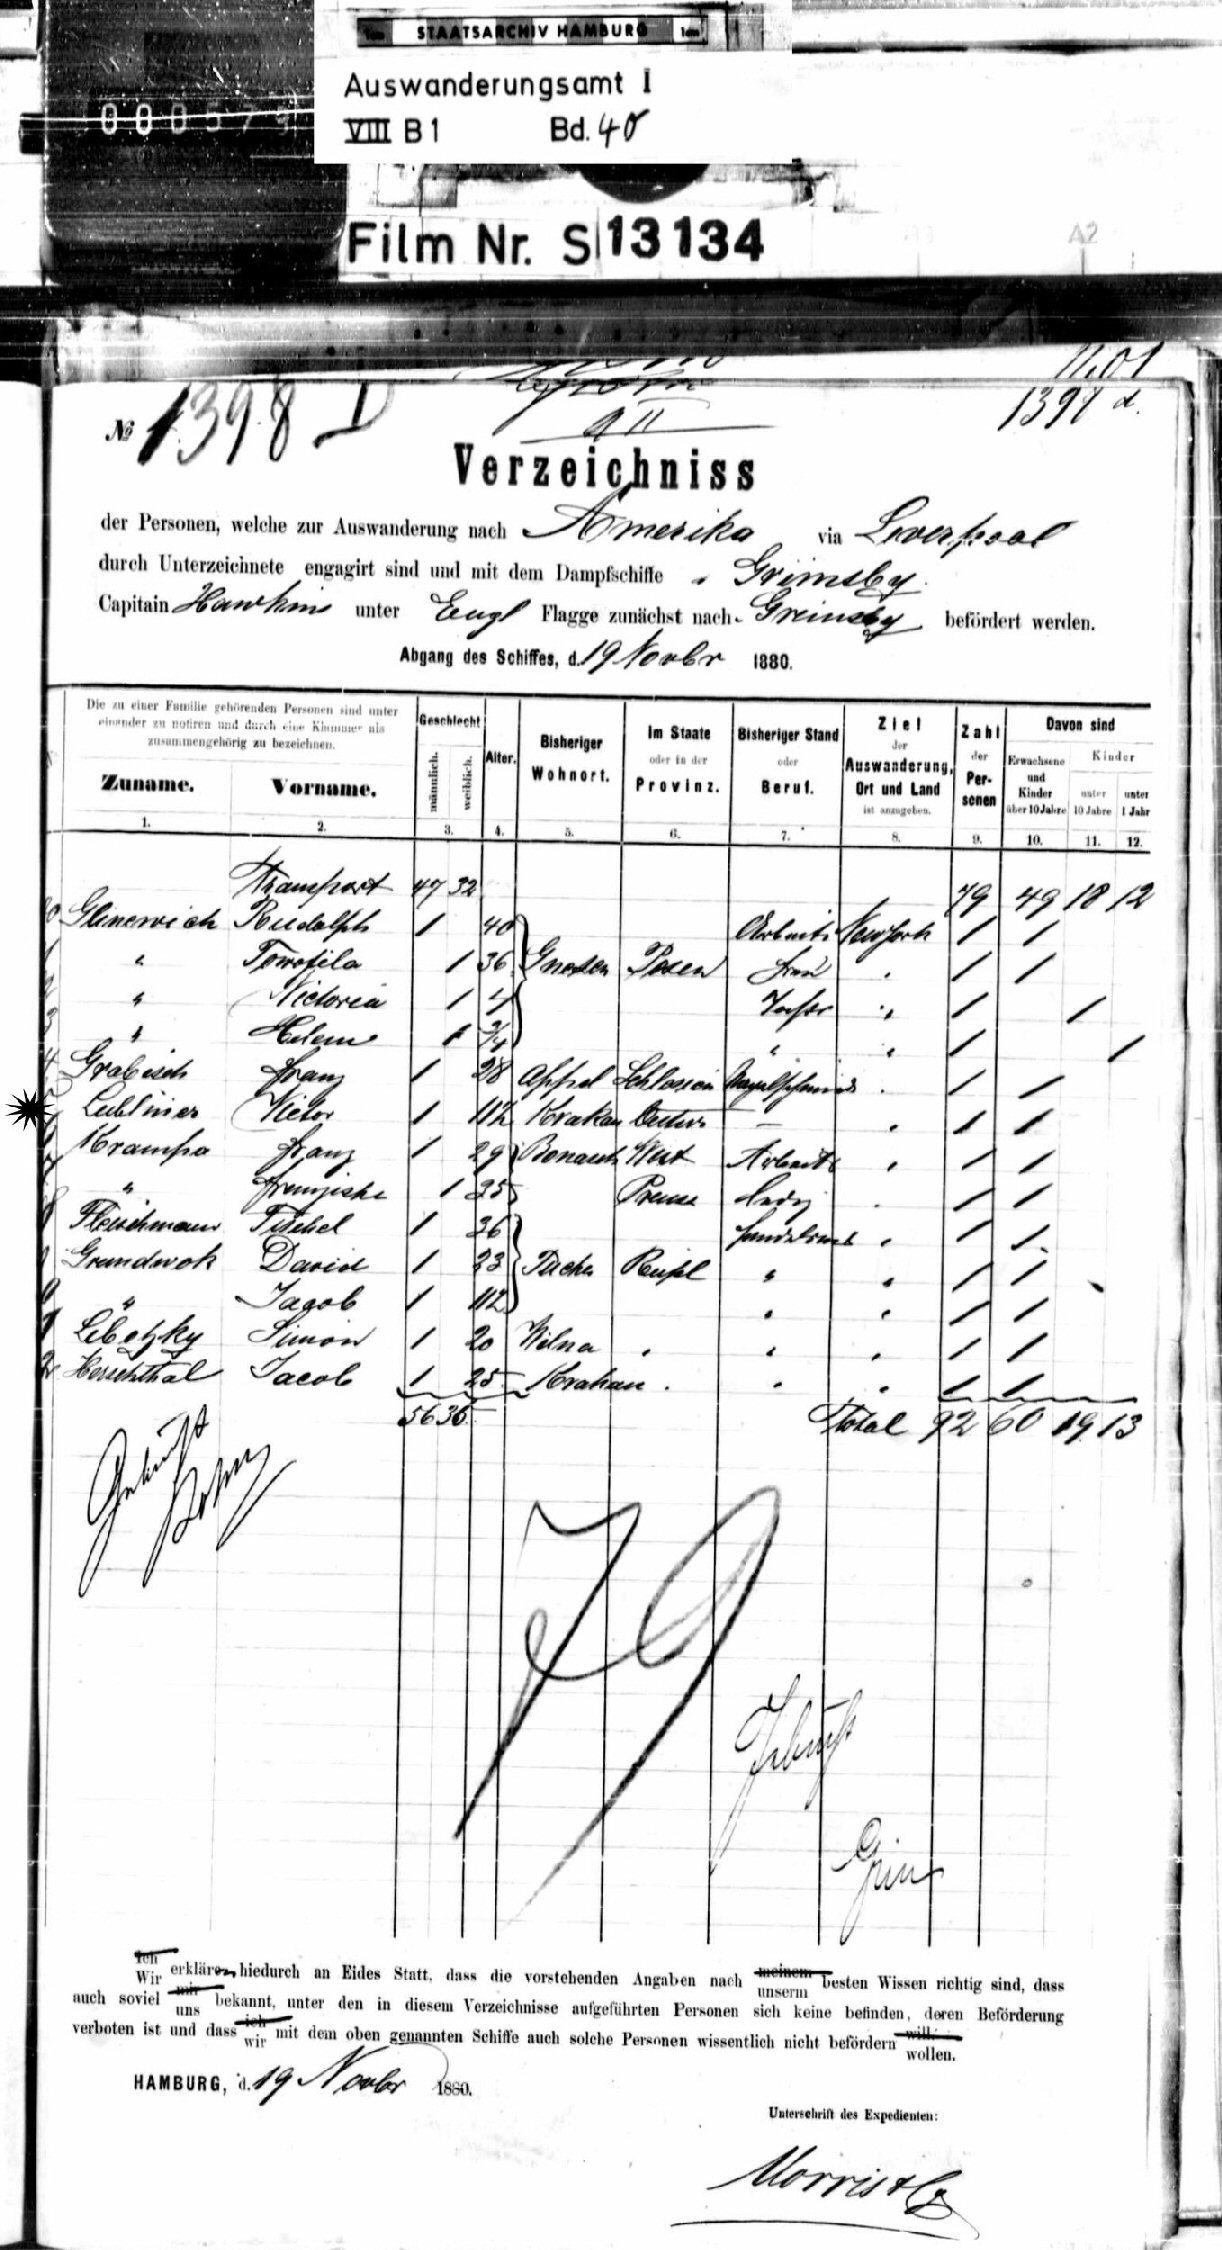 STAATSARCHIV HAMBURG
Auswanderungsamt I
VIII B 1 Bd. 40
Film Nr. S 13134
1398 d.
№ 1398 D
Verzeichniss
der Personen, welche zur Auswanderung nach Amerika via Liverpool
durch Unterzeichnete engagirt sind und mit dem Dampfschiffe " Grimsby
Capitain Hawkins unter Engl Flagge zunächst nach Grimsby befördert werden.
Abgang des Schiffes, d. 19 Novbr 1880.
Die zu einer Familie gehörenden Personen sind unter
einander zu notiren und durch eine Klammer als
zusammengehörig zu bezeichnen.
Zuname. Vorname. Geschlecht männlich. weiblich. Alter. Bisheriger Wohnort. Im Staate oder in der Provinz. Bisheriger Stand oder Beruf. Ziel der Auswanderung, Ort und Land ist anzugeben. Zahl der Personen Davon sind Erwachsene und Kinder über 10 Jahre Kinder unter 10 Jahre unter 1 Jahr
1. 2. 3. 4. 5. 6. 7. 8. 9. 10. 11. 12.
Transport 47 32 79 49 18 12
Glinewich Rudolph 1 40 Arbeitr Newyork 1 1
" Teofila 1 36 Gnesen Posen Frau " 1 1
" Victoria 1 4 " 1 1
" Helene 1 3/4 " " 1 1
Grabisch Franz 1 28 Schlesien " 1 1
Lubliner Victor 1 11½ Krakau — " 1 1
Krampa Franz 1 29 West Arbeitr " 1 1
" Franziska 1 25 Preuss " 1 1
Fleischmann Fischel 1 36 " 1 1
Grundwok David 1 23 Russl " " 1 1
" Jacob 1 11½ " " 1 1
Lebetzky Simon 1 20 Wilna " " " 1 1
Herschthal Jacob 1 25 Krakau " " " 1 1
56 36 Total 92 60 19 13
79
Ich Wir erklären hiedurch an Eides Statt, dass die vorstehenden Angaben nach meinem unserm besten Wissen richtig sind, dass
auch soviel mir uns bekannt, unter den in diesem Verzeichnisse aufgeführten Personen sich keine befinden, deren Beförderung
verboten ist und dass ich wir mit dem oben genannten Schiffe auch solche Personen wissentlich nicht befördern will. wollen.
HAMBURG, d. 19 Novbr 1880.
Unterschrift des Expedienten:
Morris & Co